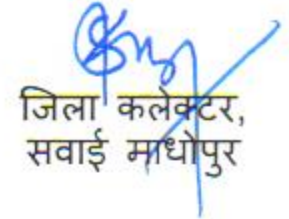 जिला कलेक्टर,
सवाई माधोपुर